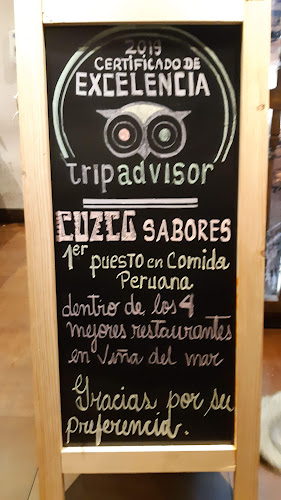 2019
CERTIFICADO DE
EXCELENCIA
tripadvisor
CUZCO SABORES
1er puesto en Comida
Peruana
dentro de los 4
mejores restaurantes
en Viña del mar
Gracias por su
preferencia.